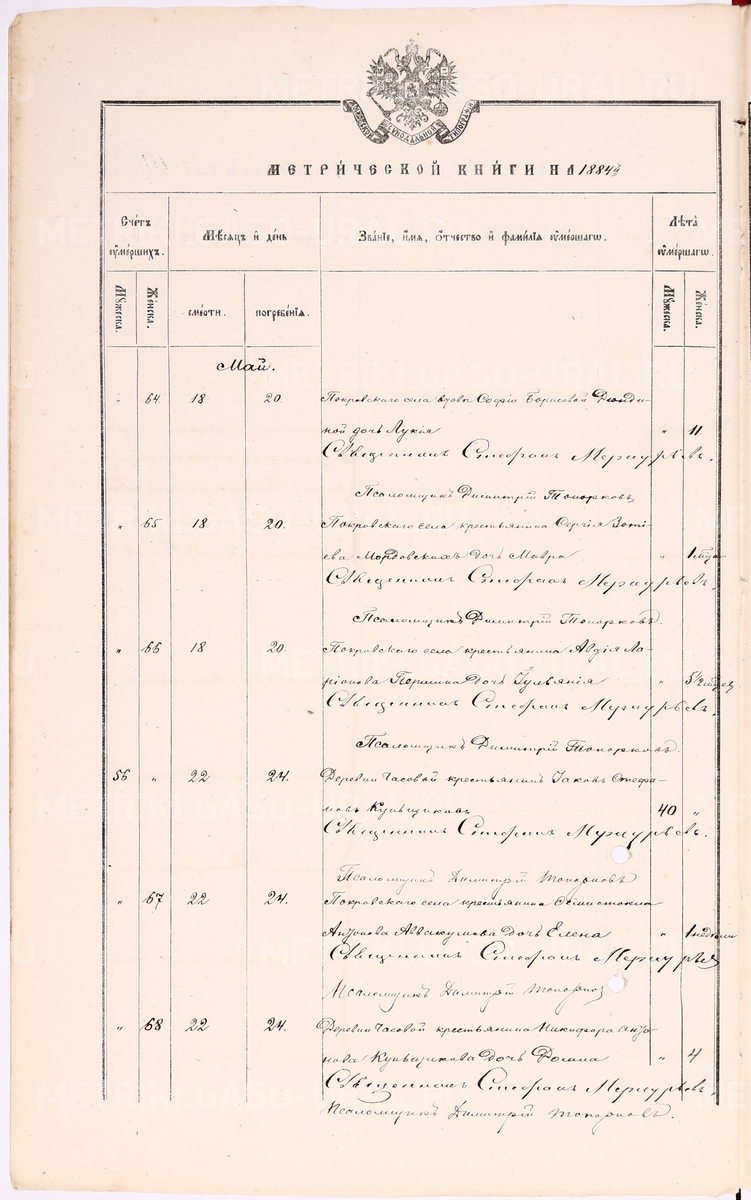 МОСКОВСКОЙ СѴНОДАЛЬНОЙ ТИПОГРАФІИ
МЕТРИ́ЧЕСКОЙ КНИ́ГИ НА 1884 г.
Сче́тъ оу҆ме́ршихъ.
Мѣ́сяцъ и҆ де́нь
Зва́нїе, и҆́мя, ѻ҆́тчество и҆ фами́лїя оу҆ме́ршагѡ.
Лѣ́та оу҆ме́ршагѡ.
Му́жеска.
Же́нска.
сме́рти.
погребе́нїя.
Му́жеска.
Же́нска.
Май.
" 64 18 20. Покровскаго села вдовы Софіи Борисовой
ной дочь Лукія " 11
Священникъ Стефанъ Меркурьевъ.
Псаломщикъ Димитрій Топорковъ
" 65 18 20. Покровскаго села крестьянина Сергія Зоті-
ева Мордовскихъ дочь Мавра " 1 мѣся
Священникъ Стефанъ Меркурьевъ.
Псаломщикъ Димитрій Топорковъ.
" 66 18 20. Покровскаго села крестьянина Авдія Ла-
ріонова Першина дочь Іульянія " 5½ мѣсяц
Священникъ Стефанъ Меркурьевъ.
Псаломщикъ Димитрій Топорковъ.
56 " 22 24. Деревни Часовой крестьянинъ Іаковъ Стефа-
новъ Кунгщиковъ 40 "
Священникъ Стефанъ Меркурьевъ.
Псаломщикъ Димитрій Топорковъ
" 67 22 24. Покровскаго села крестьянина Ѳемистокла
Антонова Аввакумова дочь Елена " 1 недѣли
Священникъ Стефанъ Меркурьевъ
Псаломщикъ Димитрій Топорковъ
" 68 22 24. Деревни Часовой крестьянина Никифора Анто-
нова Кунгщикова дочь Домна " 4
Священникъ Стефанъ Меркурьевъ.
Псаломщикъ Димитрій Топорковъ.